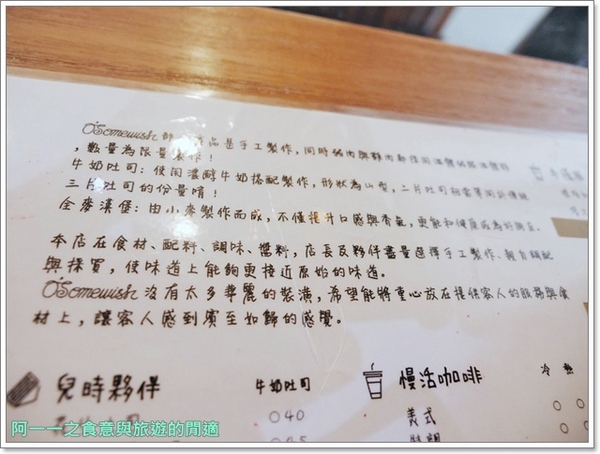 O'Somewish 是手工製作,同時豬肉與雞肉
,數量為限量製作!
牛奶吐司:使用濃醇牛奶搭配製作,形狀為山型,二片吐司相當等同於傳統
三片吐司的份量唷!
全麥漢堡:由小麥製作而成,不僅提升口感與香氣,更能和健康成為好朋友。
本店在食材、配料、調味、醬料,店長及夥伴盡量選擇手工製作、親自調配
與採買,使味道上能夠更接近原始的味道。
O'Somewish 沒有太多華麗的裝潢,希望能將重心放在提供客人的服務與食
材上,讓客人感到賓至如歸的感覺。
兒時夥伴 牛奶吐司 慢活咖啡 冷 熱
040 美式
阿一一之食意與旅遊的閒適